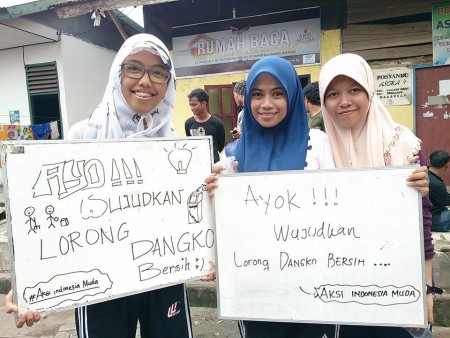 RUMAH BACA
POSYANDU
ASOKA 4
AYO !!!
WUJUDKAN
LORONG
DANGKO
Bersih :)
#Aksi indonesia Muda
Ayok !!!
Wujudkan
Lorong DANGKO BERSIH ....
AKSI INDONESIA MUDA